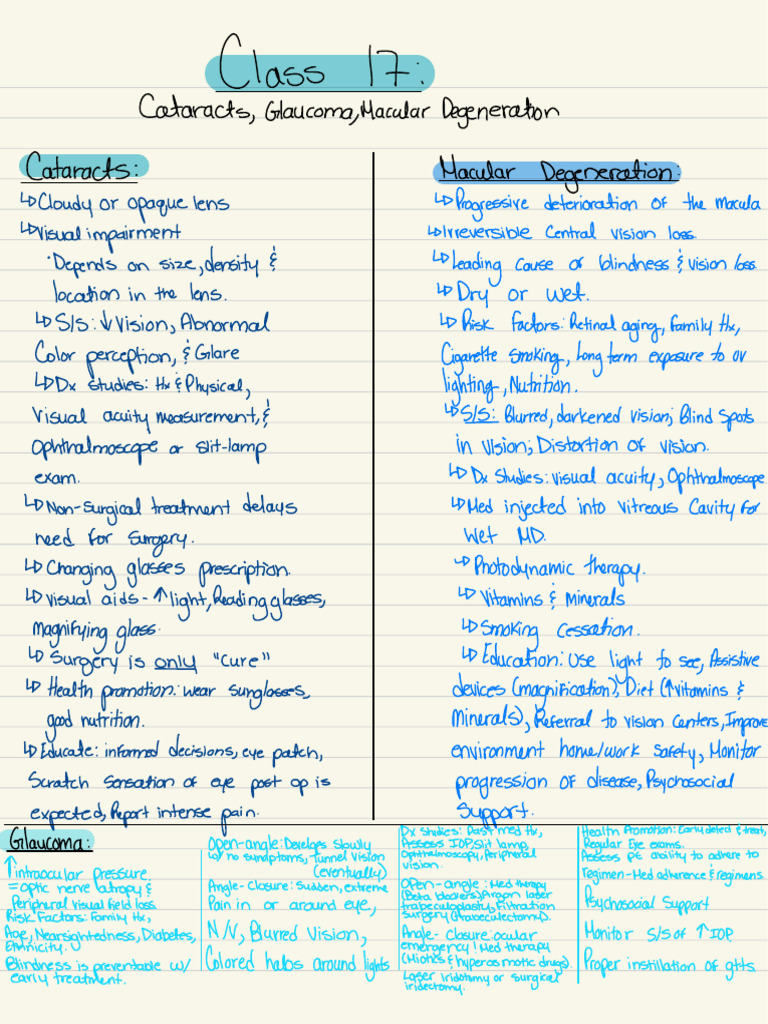 Class 17:
Cataracts, Glaucoma, Macular Degeneration
Cataracts:
↳ Cloudy or opaque lens
↳ Visual impairment
· Depends on size, density &
location in the lens.
↳ S/S: ↓ Vision, Abnormal
Color perception, & Glare
↳ Dx studies: Hx & Physical,
Visual acuity measurement, &
Ophthalmoscope or slit-lamp
exam.
↳ Non-surgical treatment delays
need for surgery.
↳ Changing glasses prescription.
↳ Visual aids - ↑ light, Reading glasses,
magnifying glass.
↳ Surgery is only "cure"
↳ Health promotion: wear sunglasses,
good nutrition.
↳ Educate: informed decisions, eye patch,
Scratch sensation of eye post op is
expected, Report intense pain.
Macular Degeneration:
↳ Progressive deterioration of the macula
↳ Irreversible Central vision loss
↳ Leading cause of blindness & vision loss
↳ Dry or Wet.
↳ Risk Factors: Retinal aging, Family Hx,
Cigarette smoking, Long term exposure to UV
lighting, Nutrition.
↳ S/S: Blurred, darkened vision; Blind Spots
in vision; Distortion of vision.
↳ Dx Studies: visual acuity, Ophthalmoscope
↳ Med injected into vitreous Cavity for
Wet MD.
↳ Photodynamic therapy.
↳ Vitamins & Minerals
↳ Smoking Cessation.
↳ Education: Use light to see, Assistive
devices (magnification), Diet (↑ vitamins &
Minerals), Referral to vision Centers, Improve
environment home/work safety, Monitor
progression of disease, Psychosocial
Support.
Glaucoma:
↑ intraocular Pressure
= Optic nerve atropy &
Peripheral visual field loss.
Risk Factors: Family Hx,
Age, Nearsightedness, Diabetes,
Ethnicity.
Blindness is preventable w/
early treatment.
Open-angle: Develops slowly
w/ no symptoms, Tunnel vision
(eventually)
Angle-Closure: Sudden, extreme
Pain in or around eye,
N/V, Blurred Vision,
Colored halos around lights
Dx Studies: Past med Hx,
Assess IOP, Slit lamp,
Opthalmoscopy, Peripheral
vision.
Open-angle: Med therapy
(Beta blockers), Argon laser
trabeculoplasty, Filtration
surgery (trabeculectomy).
Angle-Closure: ocular
emergency! Med therapy
(Miotics & hyperosmotic drugs).
Laser iridotomy or surgical
iridectomy.
Health Promotion: Early detect & treat,
Regular Eye exams.
Assess pt ability to adhere to
Regimen - Med adherence & regimens
Psychosocial Support
Monitor S/S of ↑ IOP.
Proper instillation of gtts.